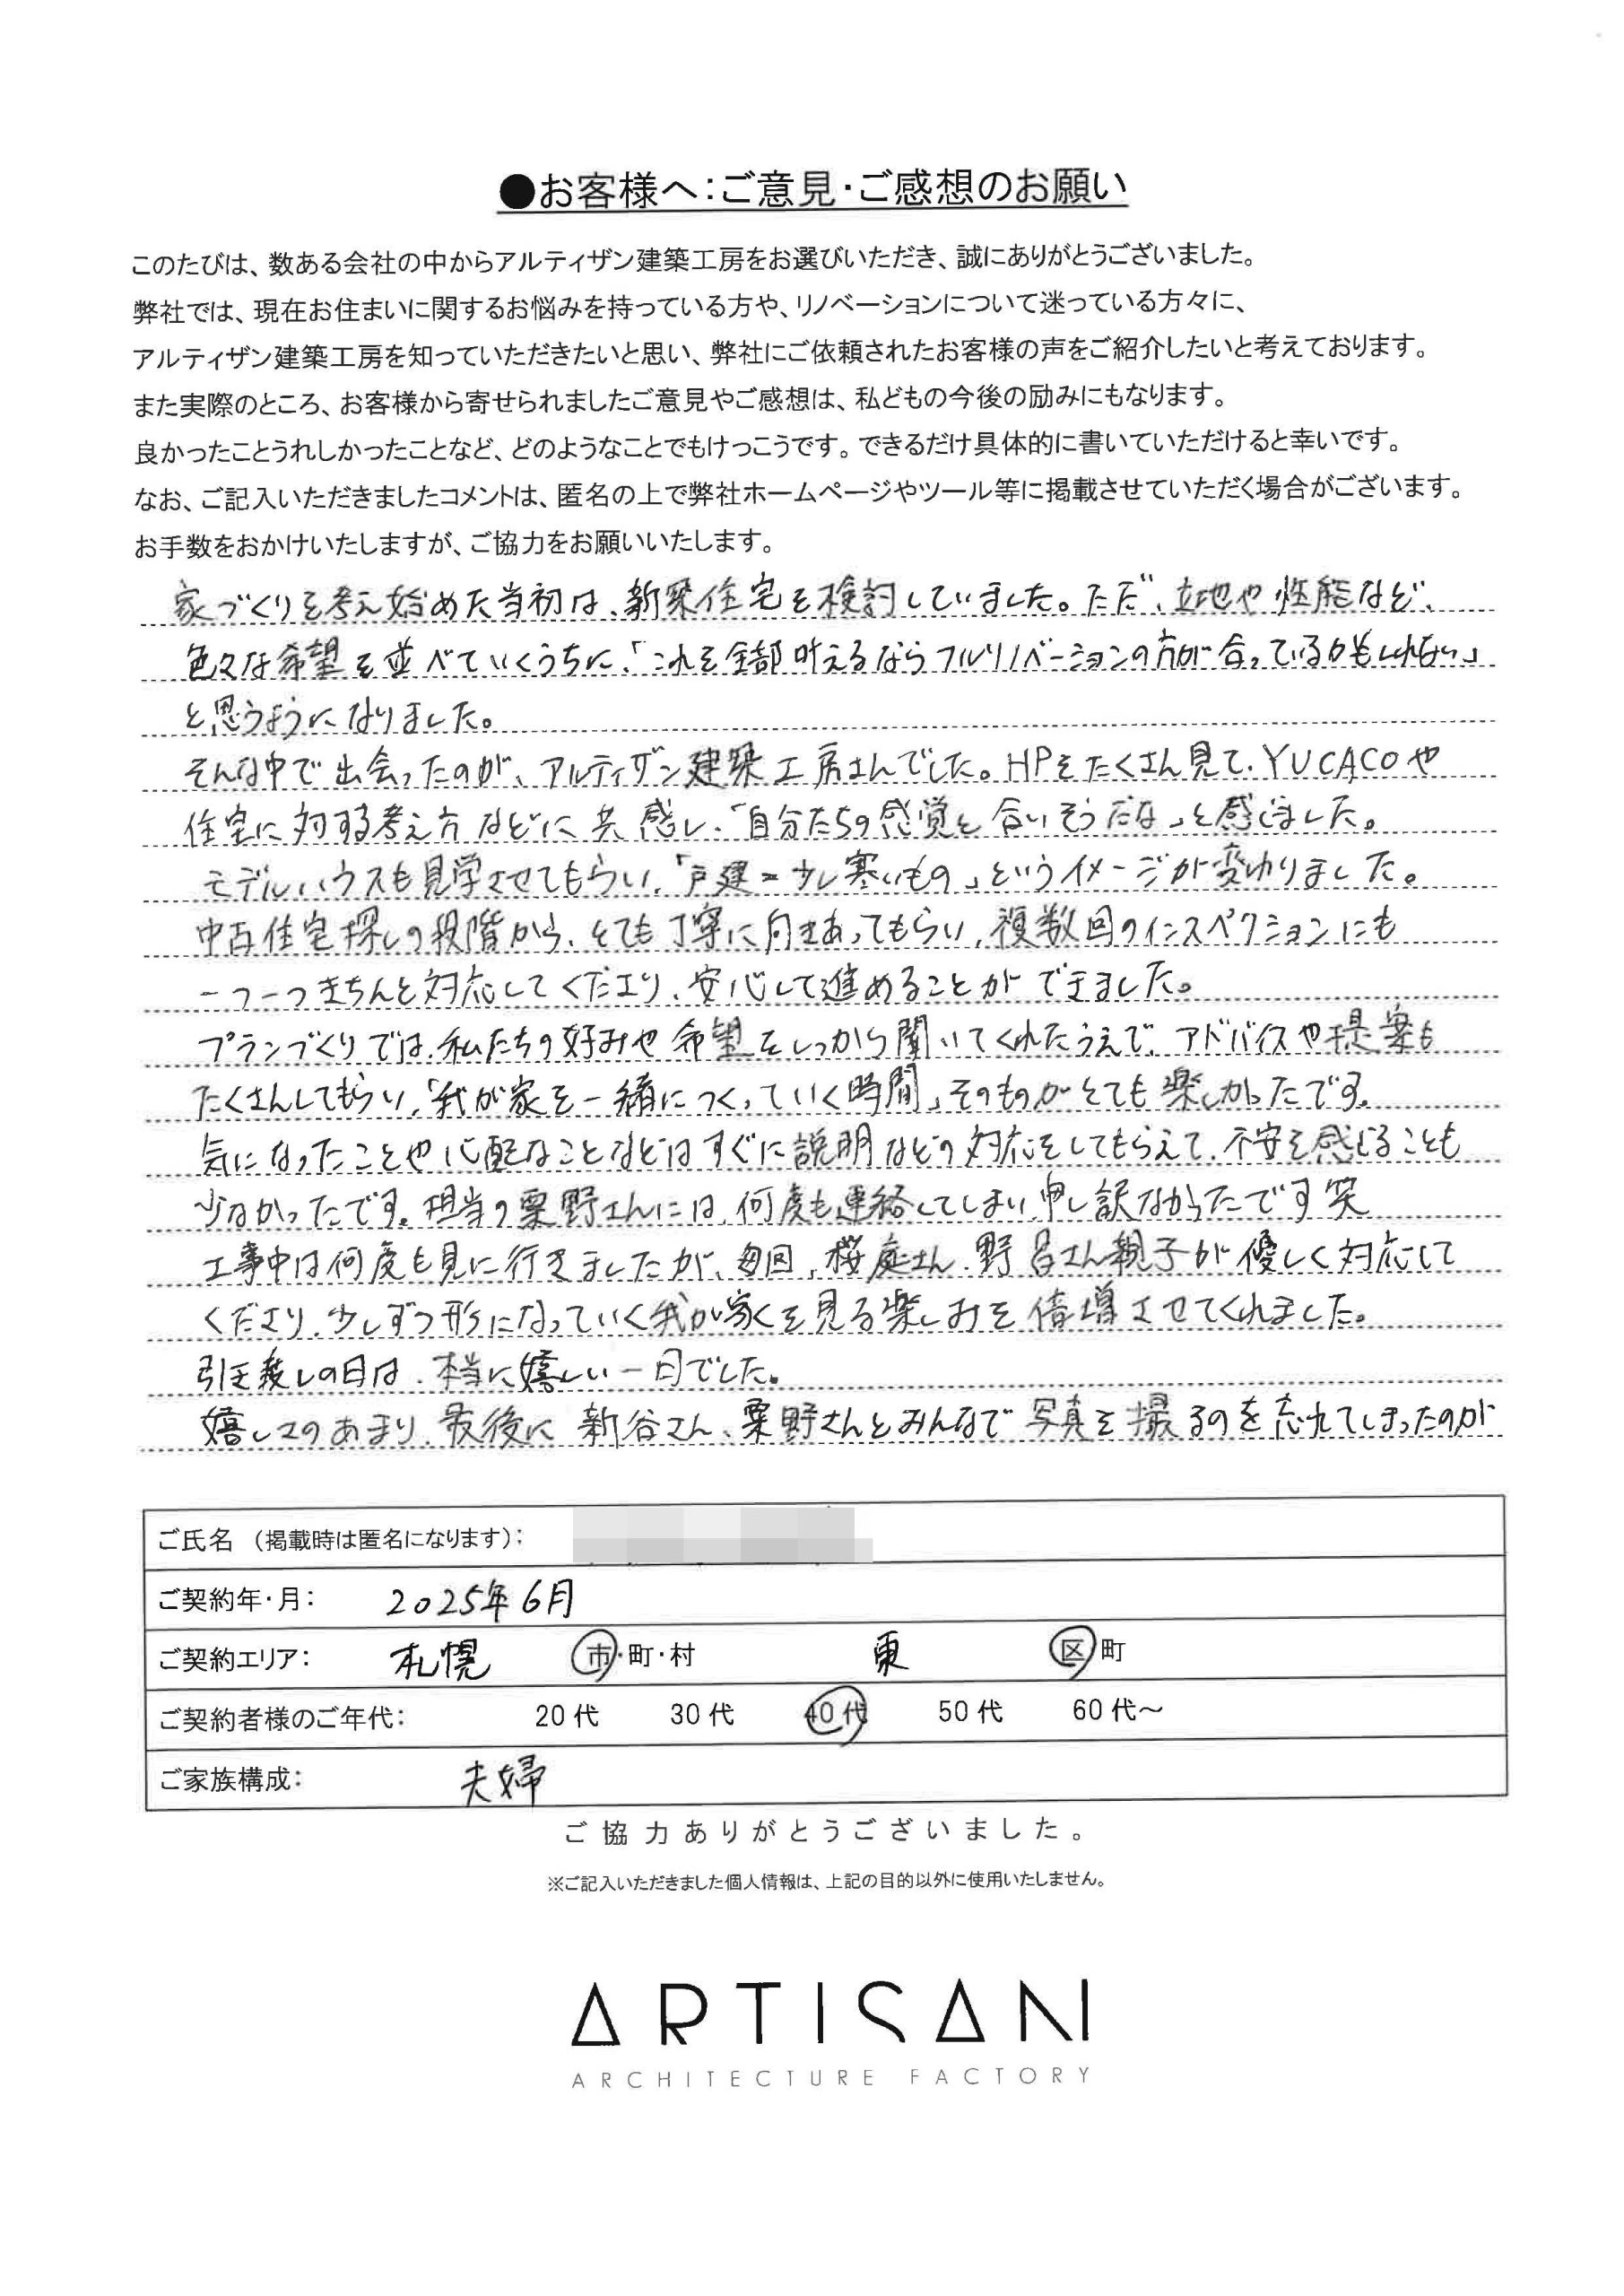 ●お客様へ：ご意見・ご感想のお願い
このたびは、数ある会社の中からアルティザン建築工房をお選びいただき、誠にありがとうございました。
弊社では、現在お住まいに関するお悩みを持っている方や、リノベーションについて迷っている方々に、
アルティザン建築工房を知っていただきたいと思い、弊社にご依頼されたお客様の声をご紹介したいと考えております。
また実際のところ、お客様から寄せられましたご意見やご感想は、私どもの今後の励みにもなります。
良かったことうれしかったことなど、どのようなことでもけっこうです。できるだけ具体的に書いていただけると幸いです。
なお、ご記入いただきましたコメントは、匿名の上で弊社ホームページやツール等に掲載させていただく場合がございます。
お手数をおかけいたしますが、ご協力をお願いいたします。
家づくりを考え始めた当初は、新築住宅を検討していました。ただ、立地や性能など、
色々な希望を並べていくうちに、「これを全部叶えるならフルリノベーションの方が合っているかもしれない」
と思うようになりました。
そんな中で出会ったのが、アルティザン建築工房さんでした。HPをたくさん見て、YUCACOや
住宅に対する考え方などに共感し、「自分たちの感覚と合いそうだな」と感じました。
モデルハウスも見学させてもらい、「戸建＝少し寒いもの」というイメージが変わりました。
中古住宅探しの段階から、とても丁寧に向きあってもらい、複数回のインスペクションにも
一つ一つきちんと対応してくださり、安心して進めることができました。
プランづくりでは、私たちの好みや希望をしっかり聞いてくれたうえで、アドバイスや提案も
たくさんしてもらい、「我が家を一緒につくっていく時間」そのものがとても楽しかったです。
気になったことや心配なことなどはすぐに説明などの対応をしてもらえて、不安を感じることも
少なかったです。担当の粟野さんには、何度も連絡してしまい、申し訳なかったです笑
工事中は何度も見に行きましたが、毎回、桜庭さん、野呂さん親子が優しく対応して
くださり、少しずつ形になっていく我が家を見る楽しみを倍増させてくれました。
引き渡しの日は、本当に嬉しい一日でした。
嬉しさのあまり、最後に新谷さん、粟野さんとみんなで写真を撮るのを忘れてしまったのが
ご氏名（掲載時は匿名になります）：
ご契約年・月： 2025年6月
ご契約エリア： 札幌 市・町・村 東 区 町
ご契約者様のご年代： 20代 30代 40代 50代 60代～
ご家族構成： 夫婦
ご協力ありがとうございました。
※ご記入いただきました個人情報は、上記の目的以外に使用いたしません。
ARTISAN
ARCHITECTURE FACTORY